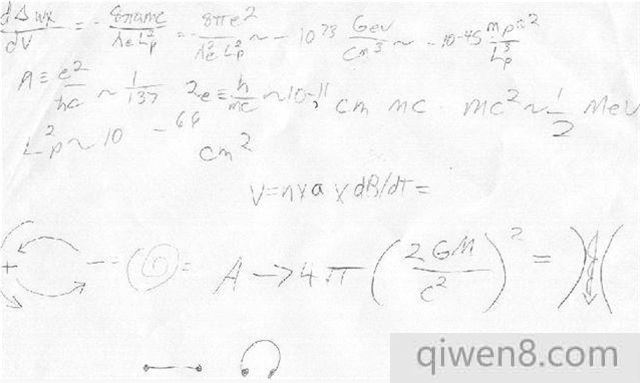 dΔwx/dV = - 8παmc/λeLp² = - 8πe²/λe²Lp² ~ - 10⁷³ Gev/cm³ ~ - 10⁻⁴⁵ mpc²/Lp³
A ≡ e²/hc ~ 1/137 2e ≡ h/mc ~ 10⁻¹¹ cm mc mc² ~ 1/2 MeV
L²p ~ 10 -66 cm²
V = n x a x dB/dt =
+ = A → 4π (2GM/c²)² =
qiwen8.com